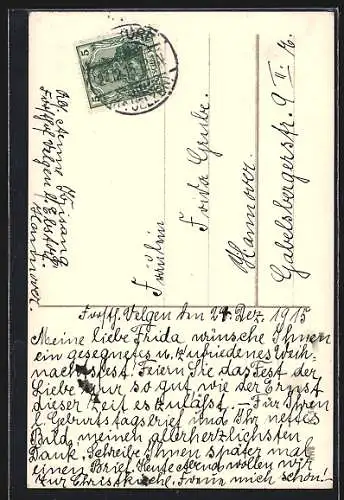 5
5
Abs. Anna
Forsth. Velgen b. Ebstorf.
Hannover.
Fräulein
Frida Grube.
Hannover.
Gabelsbergerstr. 9 II. r.
Forsth. Velgen den 24. Dez. 1915
Meine liebe Frida, wünsche Ihnen
ein gesegnetes u. zufriedenes Weih-
nachtsfest! Feiern Sie das Fest der
Liebe nur so gut wie der Ernst
dieser Zeit es zuläßt. – Für Ihren
l. Geburtstagsbrief und Ihr nettes
Bild meinen allerherzlichsten
Dank. Schreibe Ihnen später mal
einen Brief. Heute Abend wollen wir
zur Christkirche. Freue mich schon!